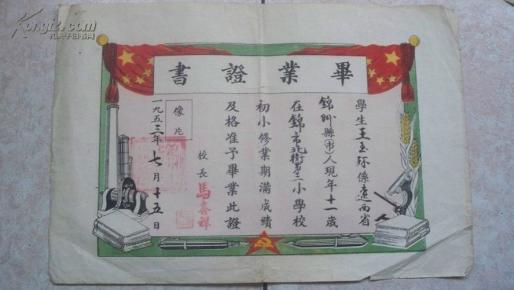 畢業證書
學生王玉珍係遼西省
錦州縣(市)人現年十一歲
在錦市北街第二小學校
初小修業期滿成績
及格准予畢業此證
校長馬喜祥
像片
一九五三年七月十五日